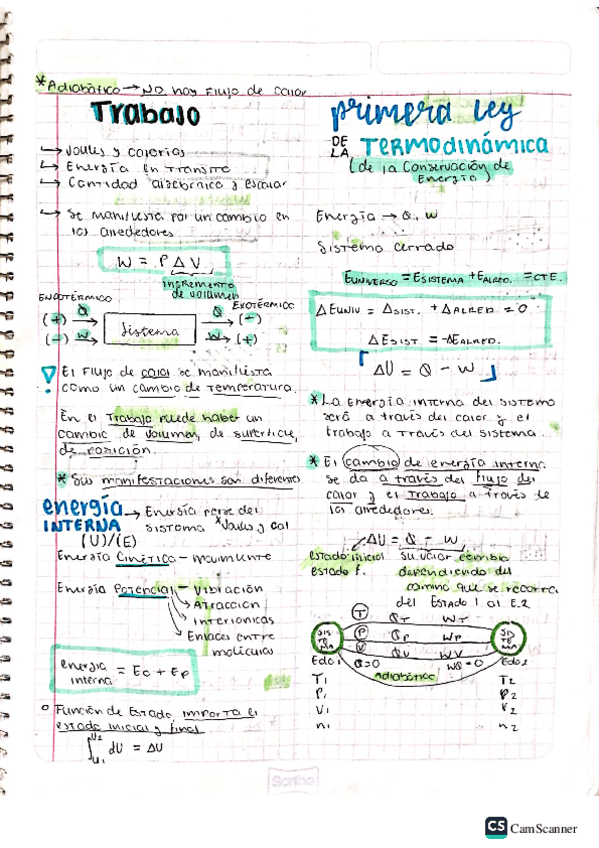 *Adiabático → No hay Flujo de calor
Trabajo
↳ Joules y calorías
↳ Energía en Transito
↳ Cantidad algebraica y escalar
↳ Se manifiesta por un cambio en
los alrededores
W = P Δ V
incremento
de volumen
ENDOTÉRMICO
EXOTÉRMICO
(+) Q → Sistema Q → (-)
(-) W → W → (+)
! El Flujo de calor se manifiesta
como un cambio de temperatura.
En el Trabajo puede haber un
cambio de volumen, de superficie,
de posición.
* Sus manifestaciones son diferentes
energía
INTERNA
→ Energía
sistema *Joules y cal
(U)/(E)
Energía Cinética – movimiento
Energía Potencial – Vibración
↳ Atracción
↳ Interionicas
↳ Enlaces entre
moléculas
energía
interna = Ec + Ep
○ Función de Estado, importa el
estado inicial y final
∫ U2 U1 dU = ΔU
primera ley
DE
LA
TERMODINÁMICA
(de la Conservación de
Energía)
Energía → Q, W
Sistema cerrado
EUNIVERSO = ESISTEMA + EALRED. = CTE.
ΔEUNIV = ΔSIST. + ΔALRED = 0
ΔESIST. = -ΔEALRED.
ΔU = Q - W
* La energía interna del sistema
será a través del calor y el
trabajo a través del sistema.
* El cambio de energía interna
se da a través del flujo del
calor y el Trabajo a través de
los alrededores.
ΔU = Q - W
estado inicial
estado f.
su valor cambia
dependiendo del
camino que se recorra
del Estado 1 al E.2
SISTEMA
T QT WT
P QP WP
V QV WV
SISTEMA
Edo 1 Q=0 WQ=0 Edo 2
Adiabático
T1 T2
P1 P2
V1 V2
n1 n2
Scribe
CS CamScanner